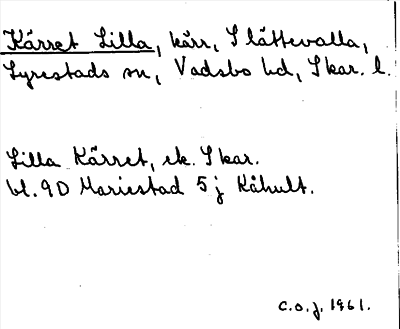 Kärret Lilla, kärr, Slättevalla,
Lyrestads sn, Vadsbo hd, Skar. l.
Lilla Kärret, ek. Skar.
bl. 9D Mariestad 5 j Kåhult.
C.O.J. 1961.